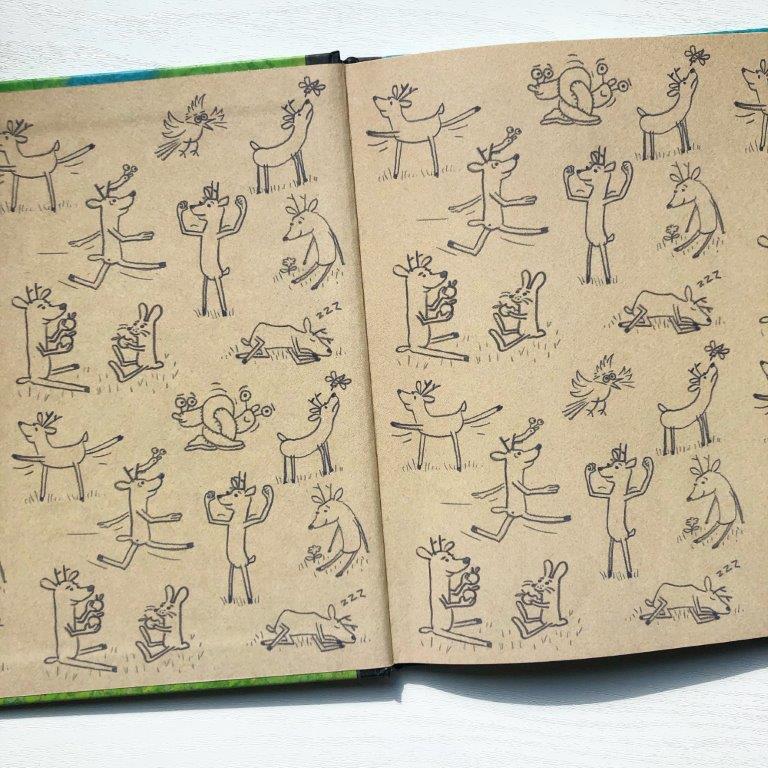 zzz
zzz
zzz
zzz